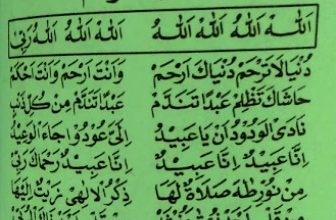 اَللهْ اَللهُ اَللهْ اَللهُ اَللهْ اَللهُ اَللهُ رَبِّي
دُنْيَا لَاتَرْحَمْ دُنْيَاكَ اَرْحَمْ وَاَنْتَ اَرْحَمْ وَاَنْتَ اَحْكَمْ
حَاشَاكَ تَظْلِمْ عَبْدًا تَنَدَّمْ عَبْدًا تَنَدَّمْ مِنْ كُلِّ ذَنْبٍ
نَادَى الْوَدُوْدُ اَنْ يَا عَبِيْدُ اِلَيَّ عُوْدُوْا جَاءَ الْوَعِيْدُ
اِنَّا عَبِيْدُ اِنَّا عَبِيْدُ اِنَّا عَبِيْدُ رَحْمَاكَ رَبِّي
مِنْ نُوْرِطٰهَ صَلَاةُ لَهَا ذِكْرُ الْاِلٰهِيْ تَرَتَّ اِلَيْهَا